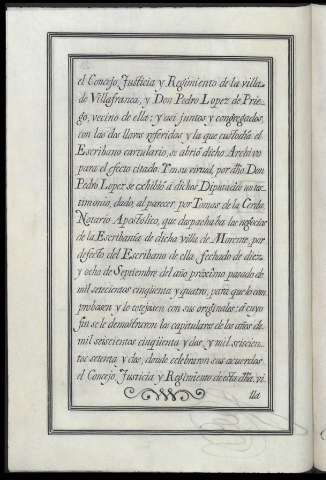 el Concejo, Justicia y Regimiento de la villa
de Villafranca; y Don Pedro Lopez de Prie-
go, vecino de ella; y asi juntos y congregados,
con las dos llaves referidas y la que custodia el
Escribano cartulario, se abrió dicho Archivo
para el efecto citado. Y en su virtud, por dho Don
Pedro Lopez se exhibió á dichos Diputados un tes-
timonio, dado, al parecer, por Tomas de la Cerda
Notario Apostolico, que despachaba los negocios
de la Escribanía de dicha Villa de Morente, por
defecto del Escribano de ella, fechado de diez
y ocho de Septiembre del año próximo pasado de
mil setecientos cinqüenta y quatro, para que lo com
probasen y lo cotejasen con sus originales: á cuyo
fin se le demostraron los capitulares de los años de
mil seiscientos cinqüenta y dos, y mil seiscien-
tos setenta y dos, donde celebraron sus acuerdos
el Concejo, Justicia y Regimiento de esta dha. vi
lla